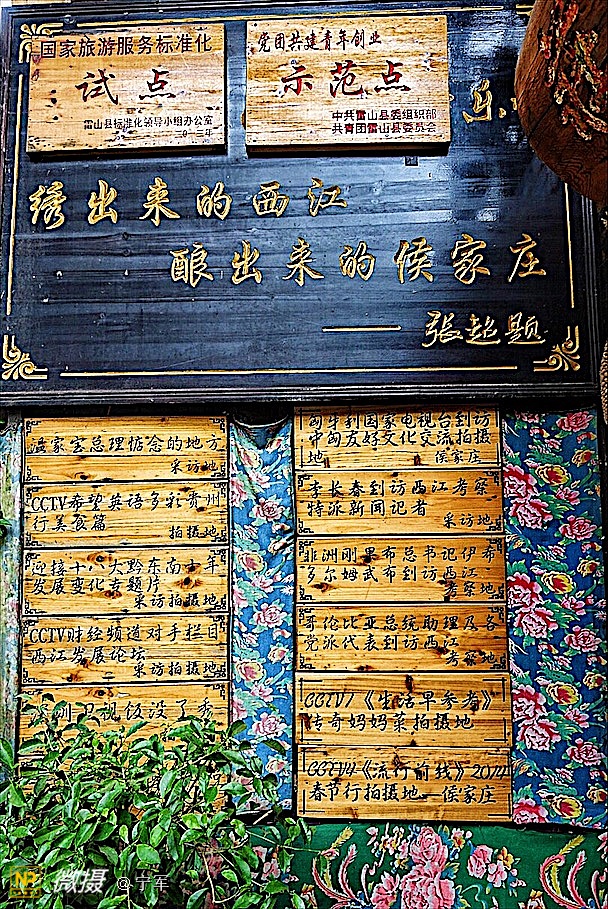 国家旅游服务标准化
试点
雷山县标准化领导小组办公室
二〇一三年
党团共建青年创业
示范点
中共雷山县委组织部
共青团雷山县委员会
绣出来的西江
酿出来的侯家庄
——张超题
温家宝总理惦念的地方
采访地
CCTV希望英语多彩贵州
行美食篇
拍摄地
迎接十八大黔东南十年
发展变化专题片
采访拍摄地
CCTV财经频道对手栏目
西江发展论坛
采访拍摄地
深圳卫视饭没了秀
匈牙利国家电视台到访
中匈友好文化交流拍摄
地 侯家庄
李长春到访西江考察
特派新闻记者
采访地
非洲刚果布总书记伊布
多尔姆武布到访西江
考察地
哥伦比亚总统助理及各
党派代表到访西江
考察地
CCTV7《生活早参考》
传奇妈妈菜拍摄地
CCTV4《流行前线》2014
春节行拍摄地—侯家庄
微摄 @宁军